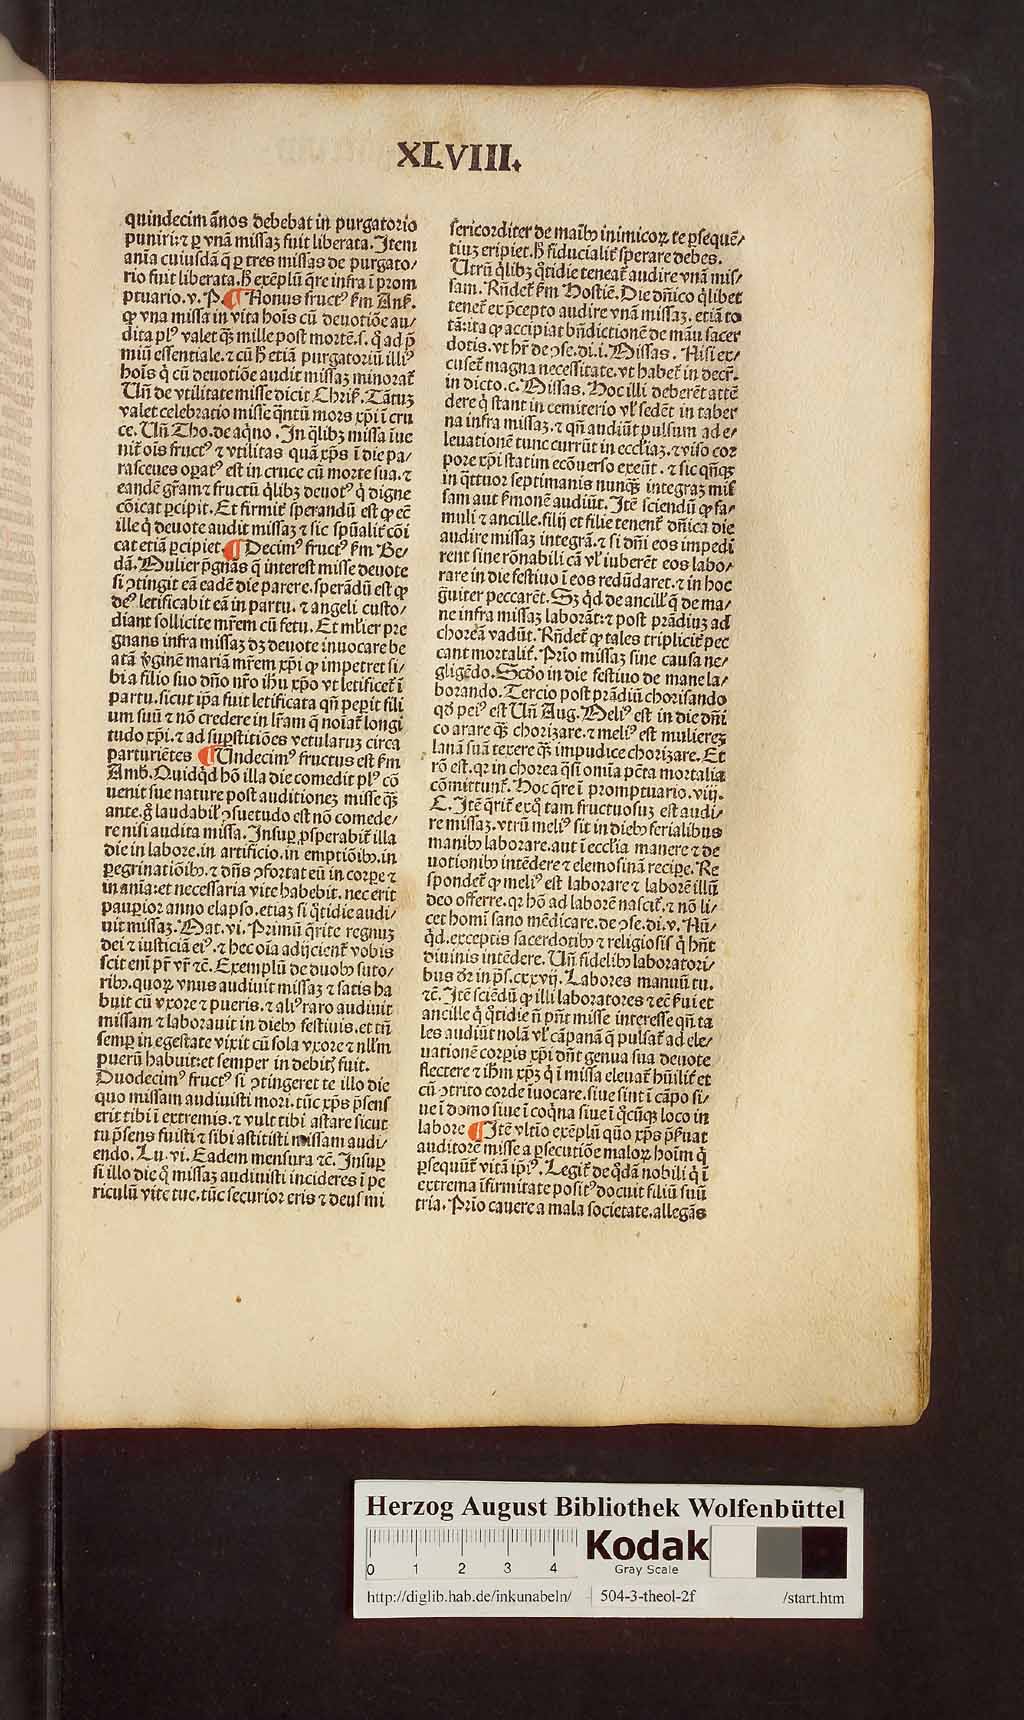 XLVIII.
quindecim ãnos debebat in purgatorio
puniri: ⁊ ꝑ vnã missaʒ fuit liberata. Item
anĩa cuiusdã q̃ ꝑ tres missas de purgato⸗
rio fuit liberata. ħ exẽplũ q̃re infra ĩ prom
ptuario. v. P. ¶ Nonus fruct⁹ ẜm Anẜ.
ꝙ vna missa in vita hoĩs cũ deuotiõe au⸗
dita pl⁹ valet q̃ʒ mille post mortẽ. s. q̃ ad p̃
miũ essentiale. ⁊ cũ ħ etiã purgatoriũ illi⁹
hoĩs q̃ cũ deuotiõe audit missaʒ minorat̃
Uñ de vtilitate misse dicit Chriẜ. Tãtuʒ
valet celebratio misse q̃ntũ mors xp̃i ĩ cru
ce. Uñ Tho. de aq̃no. In q̃libʒ missa ĩue
nit̃ oĩs fruct⁹ ⁊ vtilitas quã xp̃s ĩ die pa⸗
rasceues oꝑat⁹ est in cruce cũ morte sua. ⁊
eandẽ gr̃am ⁊ fructũ q̃libʒ deuot⁹ q̃ digne
cõicat ꝑcipit. Et firmit̃ sperandũ est ꝙ eč
ille q̃ deuote audit missaʒ ⁊ sic sp̃ualit̃ cõi
cat etiã ꝑcipiet. ¶ Decim⁹ fruct⁹ ẜm Be⸗
dã. Mulier p̃gnãs q̃ interest misse deuote
si ↄtingit eã eadẽ die parere. sperãdũ est ꝙ
de⁹ letificabit eã in partu. ⁊ angeli custo⸗
diant sollicite mr̃em cũ fetu. Et ml̃ier pre
gnans infra missaʒ dʒ deuote inuocare be
atã ṽginẽ mariã mr̃em xp̃i ꝙ impetret si⸗
bi a filio suo dño nr̃o ihũ xp̃o vt letificet̃ ĩ
partu. sicut ip̃a fuit letificata qñ peꝑit fili
um suũ ⁊ nõ credere in lr̃am q̃ noĩat̃ longi
tudo xp̃i. ⁊ ad suꝑstitiões vetularuʒ circa
parturiẽtes ¶ Undecim⁹ fructus est ẜm
Amb. Quidq̃d hõ illa die comedit pl⁹ cõ
uenit sue nature post auditioneʒ misse q̃ʒ
ante. g̃ laudabil̃ ↄsuetudo est nõ comede⸗
re nisi audita missa. Insuꝑ ꝓsperabit̃ illa
die in labore. in artificio. in emptiõibꝰ. in
ꝑegrinatiõibꝰ. ⁊ dñs ↄfortat eũ in corꝑe ⁊
in anĩa: et necessaria vite habebit. nec erit
pauꝑior anno elapso. etiaʒ si q̃tidie audi⸗
uit missaʒ. Mat. vi. Primũ q̃rite regnuʒ
dei ⁊ iusticiã ei⁹. ⁊ hec oĩa adijcient̃ vobis
scit eni͂ pr̃ vr̃ ⁊č. Exemplũ de duobꝰ suto⸗
ribꝰ. quoꝝ vnus audiuit missaʒ ⁊ satis ha
buit cũ vxore ⁊ pueris. ⁊ ali⁹ raro audiuit
missam ⁊ laborauit in diebꝰ festiuis. et tñ
semꝑ in egestate vixit cũ sola vxore ⁊ nllm̃
puerũ habuit: et semper in debitʒ fuit.
Duodecim⁹ fruct⁹ si ↄtingeret te illo die
quo missam audiuisti mori. tũc xp̃s p̃sens
erit tibi ĩ extremis. ⁊ vult tibi astare sicut
tu p̃sens fuisti ⁊ sibi astitisti missam audi⸗
endo. Lu. vi. Eadem mensura ⁊č. Insuꝑ
si illo die q̃ missaʒ audiuisti incideres ĩ pe
riculũ vite tue. tũc securior eris ⁊ deus mi
sericorditer de maĩbꝰ inimicoꝝ te ꝑsequẽ⸗
tiuʒ eripiet. ħ fiducialit̃ sperare debes.
Utrũ q̃libʒ q̃tidie teneat̃ audire vnã mis⸗
sam. Rñdet̃ ẜm Hostiẽ. Die dñico q̃libet
tenet̃ ex p̃cepto audire vnã missaʒ. etiã to
tã: ita ꝙ accipiat bñdictionẽ de manu sacer
dotis. vt hr̃ de ↄse. di. i. Missas. Nisi ex⸗
cuset̃ magna necessitate. vt habet̃ in decr̃.
in dicto. c. Missas. Hoc illi deberẽt attẽ
dere q̃ stant in cemiterio vl̃ sedẽt in taber
na infra missaʒ. ⁊ qñ audiũt pulsum ad e⸗
leuationẽ tunc currũt in eccl̃iaʒ. ⁊ viso cor
pore xp̃i statim ecõuerso exeũt. ⁊ sic qñqʒ
in q̃ttuor septimanis nunqʒ integraʒ mis
sam aut ẜmonẽ audiũt. Itẽ sciendũ ꝙ fa⸗
muli ⁊ ancille. filij et filie tenent̃ dñica die
audire missaʒ integrã. ⁊ si dñi eos impedi
rent sine rõnabili cã vl̃ iuberẽt eos labo⸗
rare in die festiuo ĩ eos redũdaret. ⁊ in hoc
g̃uiter peccarẽt. Sʒ q̃d de ancill̃ q̃ de ma⸗
ne infra missaʒ laborãt: ⁊ post prãdiuʒ ad
choreã vadũt. Rñdet̃ ꝙ tales triplicit̃ pec
cant mortalit̃. Prĩo missaʒ sine causa ne⸗
gligẽdo. Scďo in die festiuo de mane la⸗
borando. Tercio post prãdiũ chorisando
qď pei⁹ est Uñ Aug. Meli⁹ est in die dñi
co arare q̃ʒ chorizare. ⁊ meli⁹ est muliereʒ
lanã suã texere q̃ʒ impudice chorizare. Et
rõ est. qꝛ in chorea q̃si omĩa pc̃ta mortalia
cõmittunt̃. Hoc q̃re ĩ promptuario. viij.
C. Itẽ q̃rit̃ ex q̃ tam fructuosuʒ est audi⸗
re missaʒ. vtrũ meli⁹ sit in diebꝰ ferialibus
manibꝰ laborare. aut ĩ eccl̃ia manere ⁊ de
uotionibꝰ intẽdere ⁊ elemosinã reciꝑe. Re
spondet̃ ꝙ meli⁹ est laborare ⁊ laborẽ illũ
deo offerre. qꝛ hõ ad laborẽ nascit̃. ⁊ nõ li⸗
cet homĩ sano mẽdicare. de ↄse. di. v. Nũ⸗
q̃d. exceptis sacerdotibꝰ ⁊ religiosis̃ q̃ hñt
diuinis intẽdere. Uñ fidelibꝰ laboratori⸗
bus dr̃ in p̃s. cxxvij. Labores manuũ tu.
⁊č. Itẽ sciẽdũ ꝙ illi laboratores ⁊ eč ẜui et
ancille q̃ q̃tidie ñ pñt misse interesse qñ ta
les audiũt nolã vl̃ cãpanã q̃ pulsat̃ ad ele⸗
uationẽ corꝑis xp̃i dñt genua sua deuote
flectere ⁊ ihm̃ xp̃ʒ q̃ ĩ missa eleuat̃ hũilit̃ et
cũ ↄtrito corde ĩuocare. siue sint ĩ cãpo si⸗
ue ĩ domo siue ĩ coq̃na siue ĩ q̃cũqʒ loco in
labore ¶ Itẽ vltĩo exẽplũ quõ xp̃s p̃ẜuat
auditorẽ misse a ꝑsecutiõe maloꝝ hoĩm q̃
ꝑsequũt̃ vitã ip̃i⁹. Legit̃ de q̃dã nobili q̃ ĩ
extrema ĩfirmitate posit⁹ docuit filiũ suũ
tria. Prĩo cauere a mala societate. allegãs
Herzog August Bibliothek Wolfenbüttel
0 1 2 3 4
Kodak
Gray Scale
http://diglib.hab.de/inkunabeln/ 504-3-theol-2f /start.htm